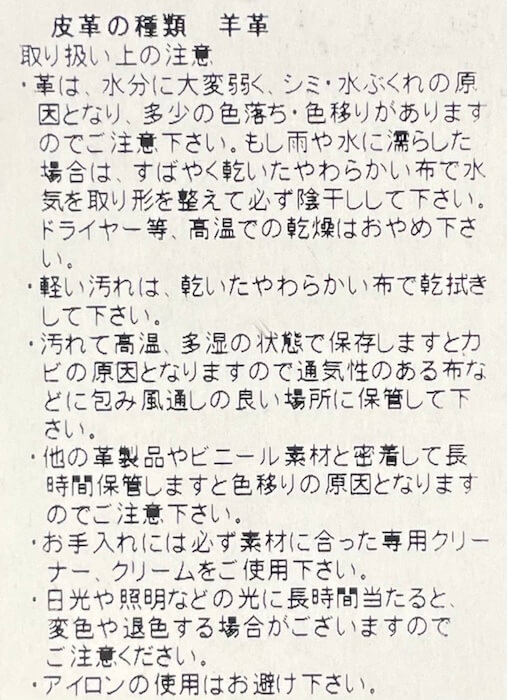 皮革の種類　羊革
取り扱い上の注意
・革は、水分に大変弱く、シミ・水ぶくれの原
因となり、多少の色落ち・色移りがあります
のでご注意下さい。もし雨や水に濡らした
場合は、すばやく乾いたやわらかい布で水
気を取り形を整えて必ず陰干しして下さい。
ドライヤー等、高温での乾燥はおやめ下さ
い。
・軽い汚れは、乾いたやわらかい布で乾拭き
して下さい。
・汚れて高温、多湿の状態で保存しますとカ
ビの原因となりますので通気性のある布な
どに包み風通しの良い場所に保管して下
さい。
・他の革製品やビニール素材と密着して長
時間保管しますと色移りの原因となります
のでご注意下さい。
・お手入れには必ず素材に合った専用クリー
ナー、クリームをご使用下さい。
・日光や照明などの光に長時間当たると、
変色や退色する場合がございますので
ご注意ください。
・アイロンの使用はお避け下さい。